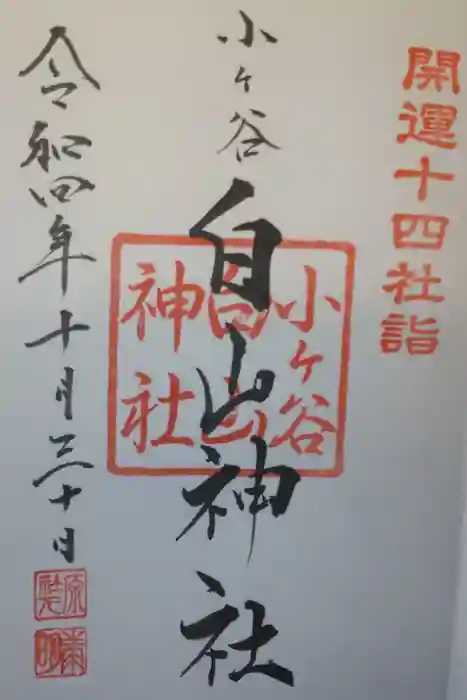 開運十四社詣
小ヶ谷
白山神社
小ヶ谷
白山
神社
令和四年十月三十日